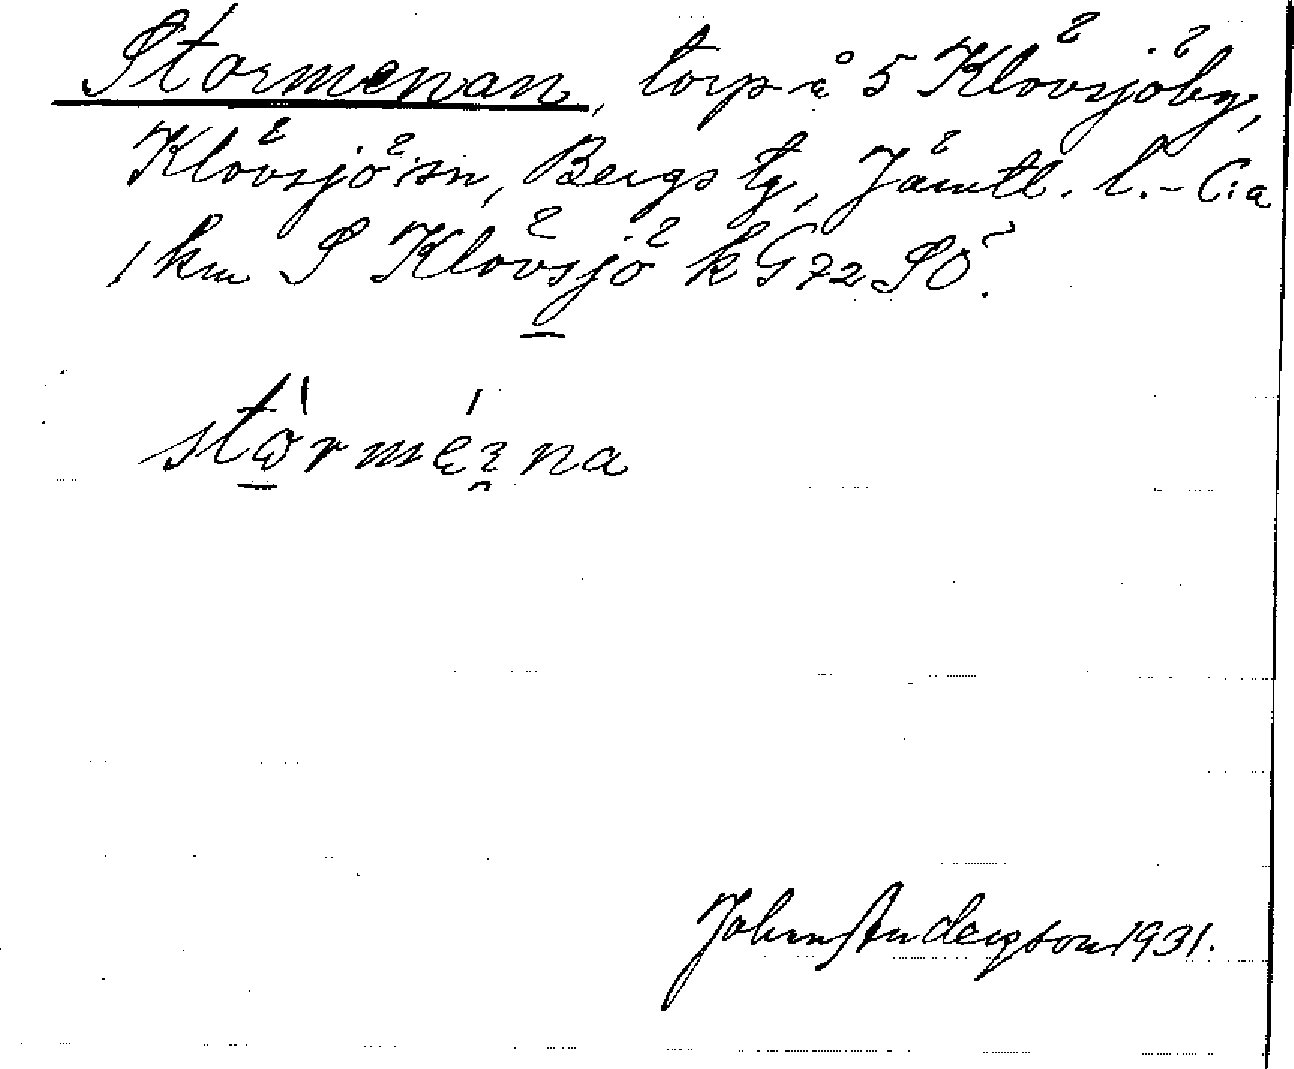 Stormenan, torp å 5 Klövsjöby,
Klövsjö sn, Bergs tg, Jämtl. l. - C:a
1 km S Klövsjö k G 72 SÖ.
John Andersson 1931.